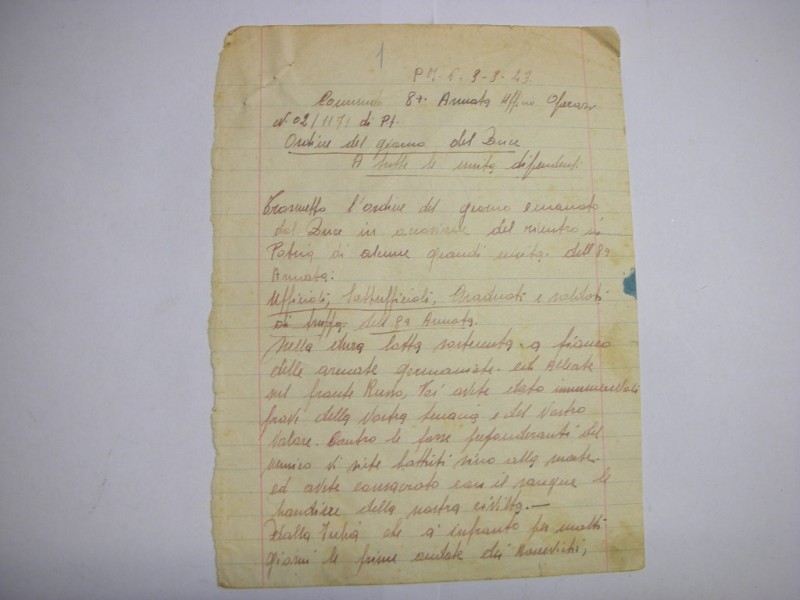 1
P.M. 6. 9-3-43
Comando 8ª Armata Ufficio Operaz.
N. 02/1171 di P.
Ordine del giorno del Duce
A tutte le unità dipendent.
Trasmetto l'ordine del giorno emanato
dal Duce in occasione del rientro in
Patria di alcune grandi unità dell'8ª
Armata:
Ufficiali, Sottufficiali, Graduati e soldati
di truppa dell'8ª Armata.
Nella dura lotta sostenuta a fianco
delle armate germaniate ed Alleate
sul fronte Russo, Voi avete dato innumerevoli
prove della Vostra tenacia e del Vostro
Valore. Contro le forze preponderanti del
nemico Vi siete battuti sino alla morte
ed avete consacrato con il sangue le
bandiere della nostra civiltà.—
Dalla Julia che à infranto per molti
giorni le prime ondate dei bolscevichi,